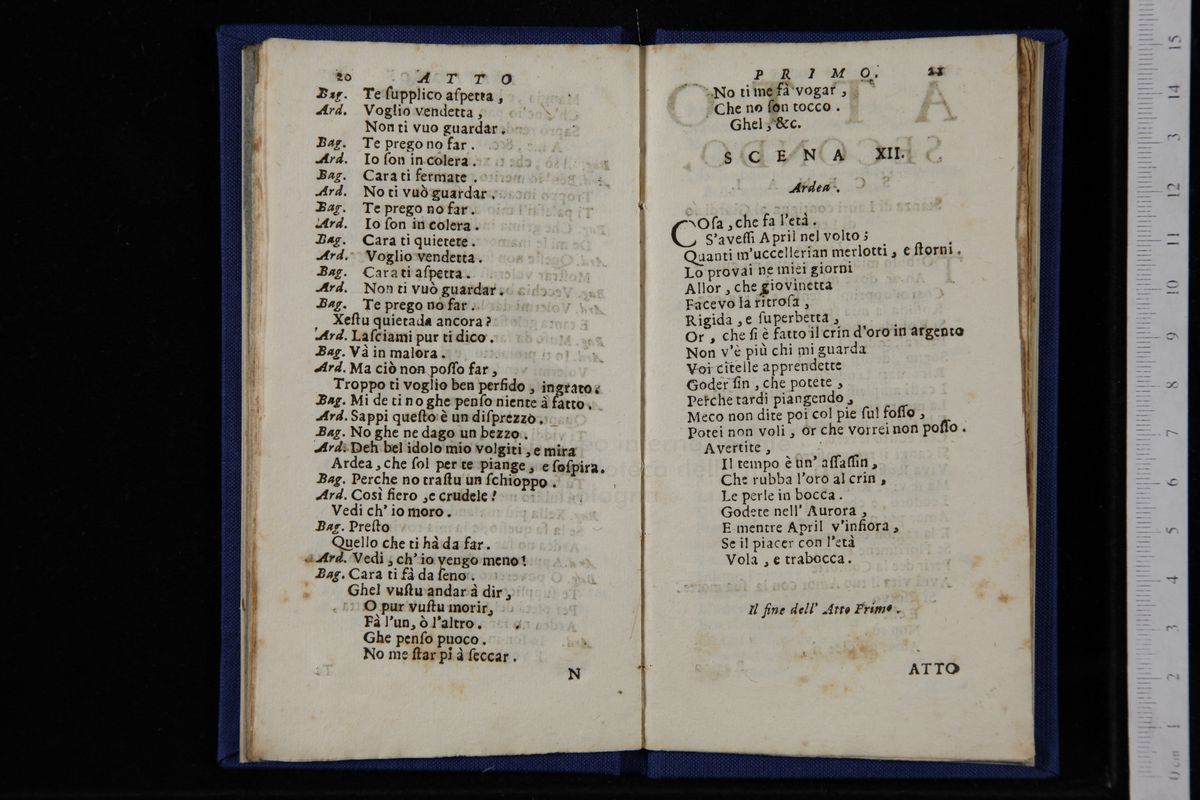 20 ATTO
Bag. Te ſupplico aſpetta,
Ard. Voglio vendetta,
Non ti vuo guardar.
Bag. Te prego no far.
Ard. Io ſon in colera.
Bag. Cara ti fermate.
Ard. No ti vuò guardar.
Bag. Te prego no far.
Ard. Io ſon in colera.
Bag. Cara ti quietete.
Ard. Voglio vendetta.
Bag. Cara ti aſpetta.
Ard. Non ti vuò guardar.
Bag. Te prego no far.
Xeſtu quietada ancora?
Ard. Laſciami pur ti dico.
Bag. Và in malora.
Ard. Ma ciò non poſſo far,
Troppo ti voglio ben perfido, ingrato.
Bag. Mi de ti no ghe penſo niente à fatto.
Ard. Sappi queſto è un diſprezzo.
Bag. No ghe ne dago un bezzo.
Ard. Deh bel idolo mio volgiti, e mira
Ardea, che ſol per te piange, e ſoſpira.
Bag. Perche no traſtu un ſchioppo.
Ard. Così fiero, e crudele!
Vedi ch' io moro.
Bag. Preſto
Quello che ti hà da far.
Ard. Vedi, ch' io vengo meno!
Bag. Cara ti fà da ſeno.
Ghel vuſtu andar à dir,
O pur vuſtu morir,
Fà l'un, ò l'altro.
Ghe penſo puoco.
No me ſtar pì à ſeccar.
N
PRIMO. 21
No ti me fà vogar,
Che no ſon tocco.
Ghel, &c.
SCENA XII.
Ardea.
COſa, che fa l'età.
S'aveſſi April nel volto;
Quanti m'uccellerian merlotti, e ſtorni.
Lo provai ne miei giorni
Allor, che giovinetta
Facevo la ritroſa,
Rigida, e ſuperbetta,
Or, che ſi è fatto il crin d'oro in argento
Non v'è più chi mi guarda
Voi citelle apprendette
Goder ſin, che potete,
Perche tardi piangendo,
Meco non dite poi col pie ſul foſſo,
Potei non voli, or che vorrei non poſſo.
Avertite,
Il tempo è un' aſſaſſin,
Che rubba l'oro al crin,
Le perle in bocca.
Godete nell' Aurora,
E mentre April v'infiora,
Se il piacer con l'età
Vola, e trabocca.
Il fine dell' Atto Primo.
ATTO